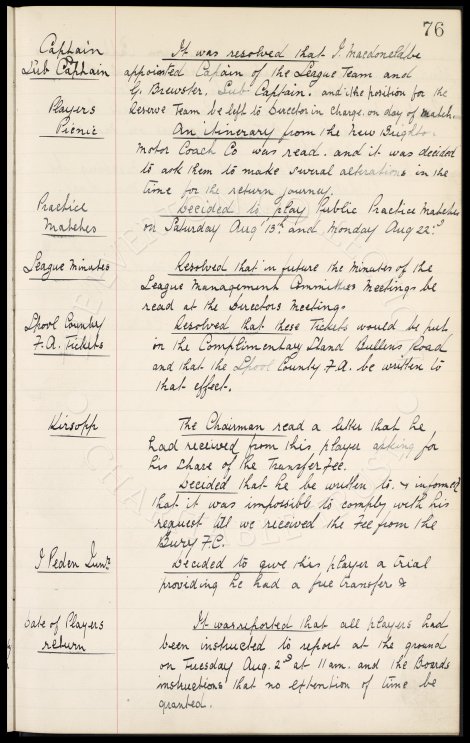 76
Captain
Sub Captain
It was resolved that J. Macdonald be
appointed Captain of the League Team and
G. Brewster, Sub Captain. and the position for the
Reserve Team be left to Director in charge, on day of match.
Players
Picnic
An itinerary from the New Brighton
Motor Coach Co was read. and it was decided
to ask them to make several alterations in the
time for the return journey.
Practice
Matches
Decided to play Public Practice Matches
on Saturday Aug 13th and Monday Aug 22nd
League Minutes
Resolved that in future the Minutes of the
League Management Committees Meetings be
read at the Directors Meetings
Lpool County
F.A. Tickets
Resolved that these Tickets would be put
on the Complimentary Stand Bullens Road
and that the Lpool County F.A. be written to
that effect.
Kirsopp
The Chairman read a letter that he
had received from this player asking for
his share of the Transfer Fee.
Decided that he be written to. & informed
that it was impossible to comply with his
request till we received the Fee from the
Bury F.C.
J Peden Junr
Decided to give this player a trial
providing he had a free transfer
Date of Players
return
It was reported that all players had
been instructed to report at the ground
on Tuesday Aug. 2nd at 11 am. and the Boards
instructions that no extention of time be
granted.